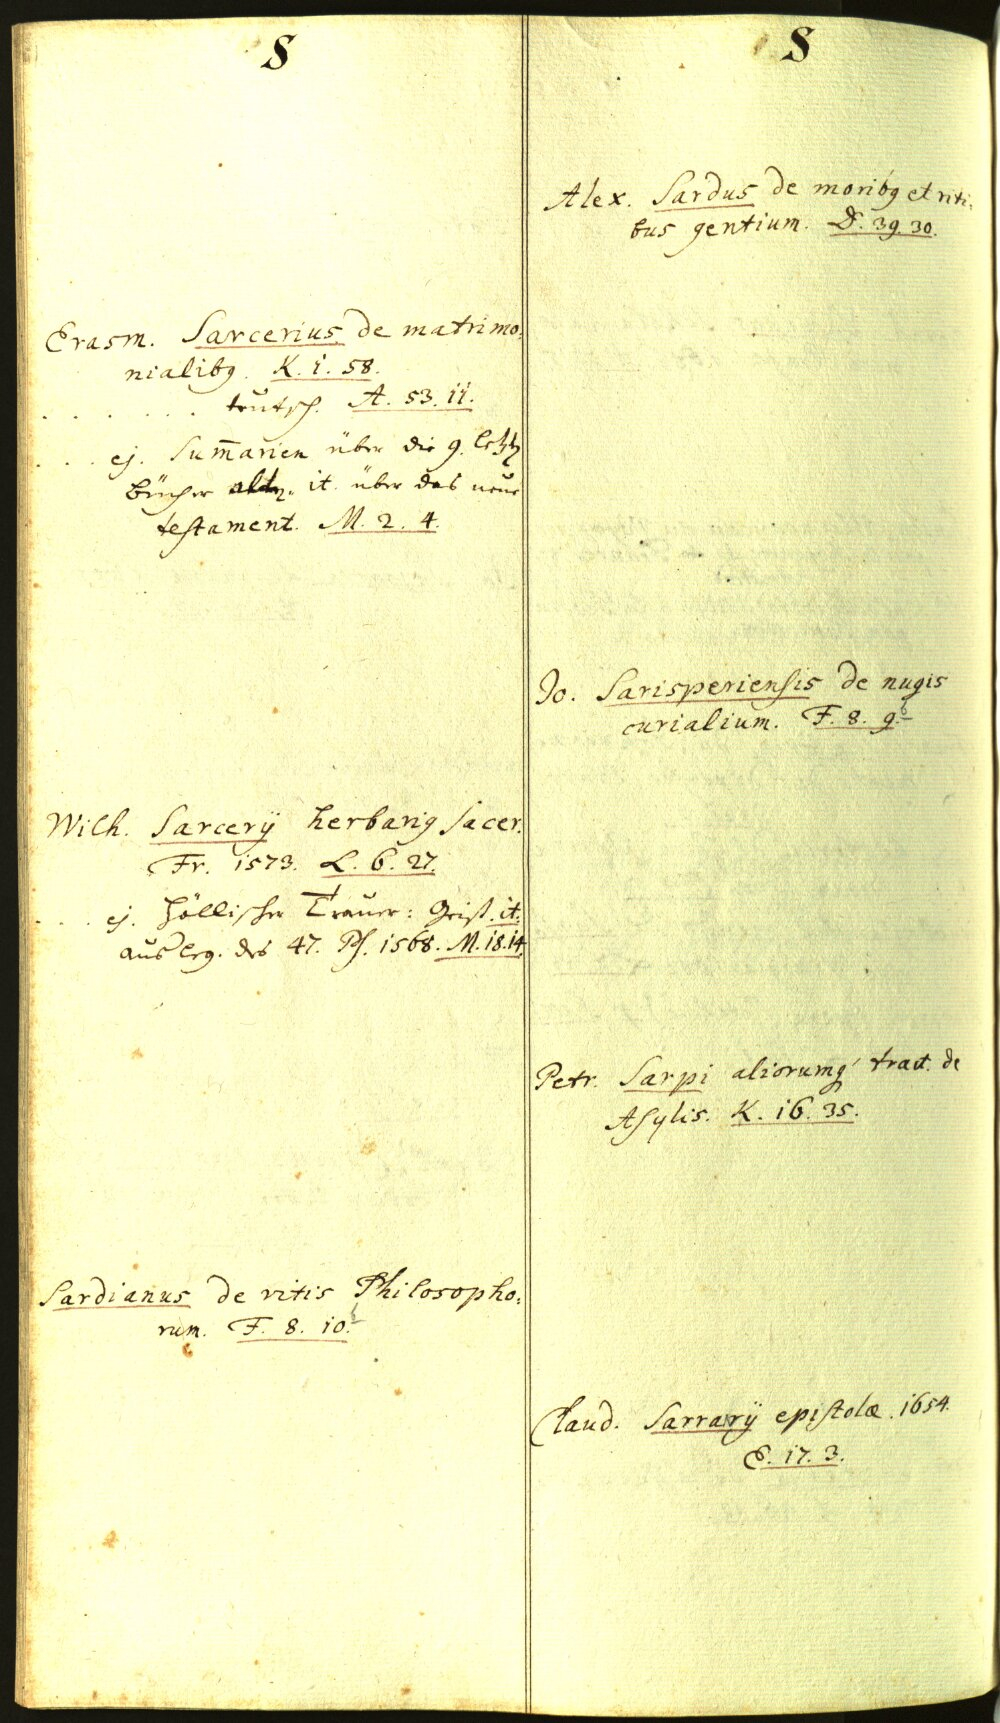 S
Erasm. Sarcerius de matrimo:
nialibq. K. 1. 58.
. . . . . . . teutsch. A. 53. 11.
. . . . ej. Sum̅arien über die 9. letzt
Bücher alt. it. über das neue
testament. M. 2. 4.
Wilh. Sarcerÿ herbariq sacer.
Fr. 1573. L. 6. 27.
. . . . ej. Höllischer Trauer: Geist. it.
Ausleg. des 47. Ps. 1568. M. 18. 14.
Sardianus de vitis Philosopho:
rum. F. 8. 10. b
S
Alex. Sardus de moribq et riti:
bus gentium. D. 39. 30.
Jo. Sarisperiensis de nugis
curialium. F. 8. 9. b
Petr. Sarpi aliorumq tract. de
Asylis. K. 16. 35.
Claud. Sarravÿ epistolæ. 1654.
E. 17. 3.